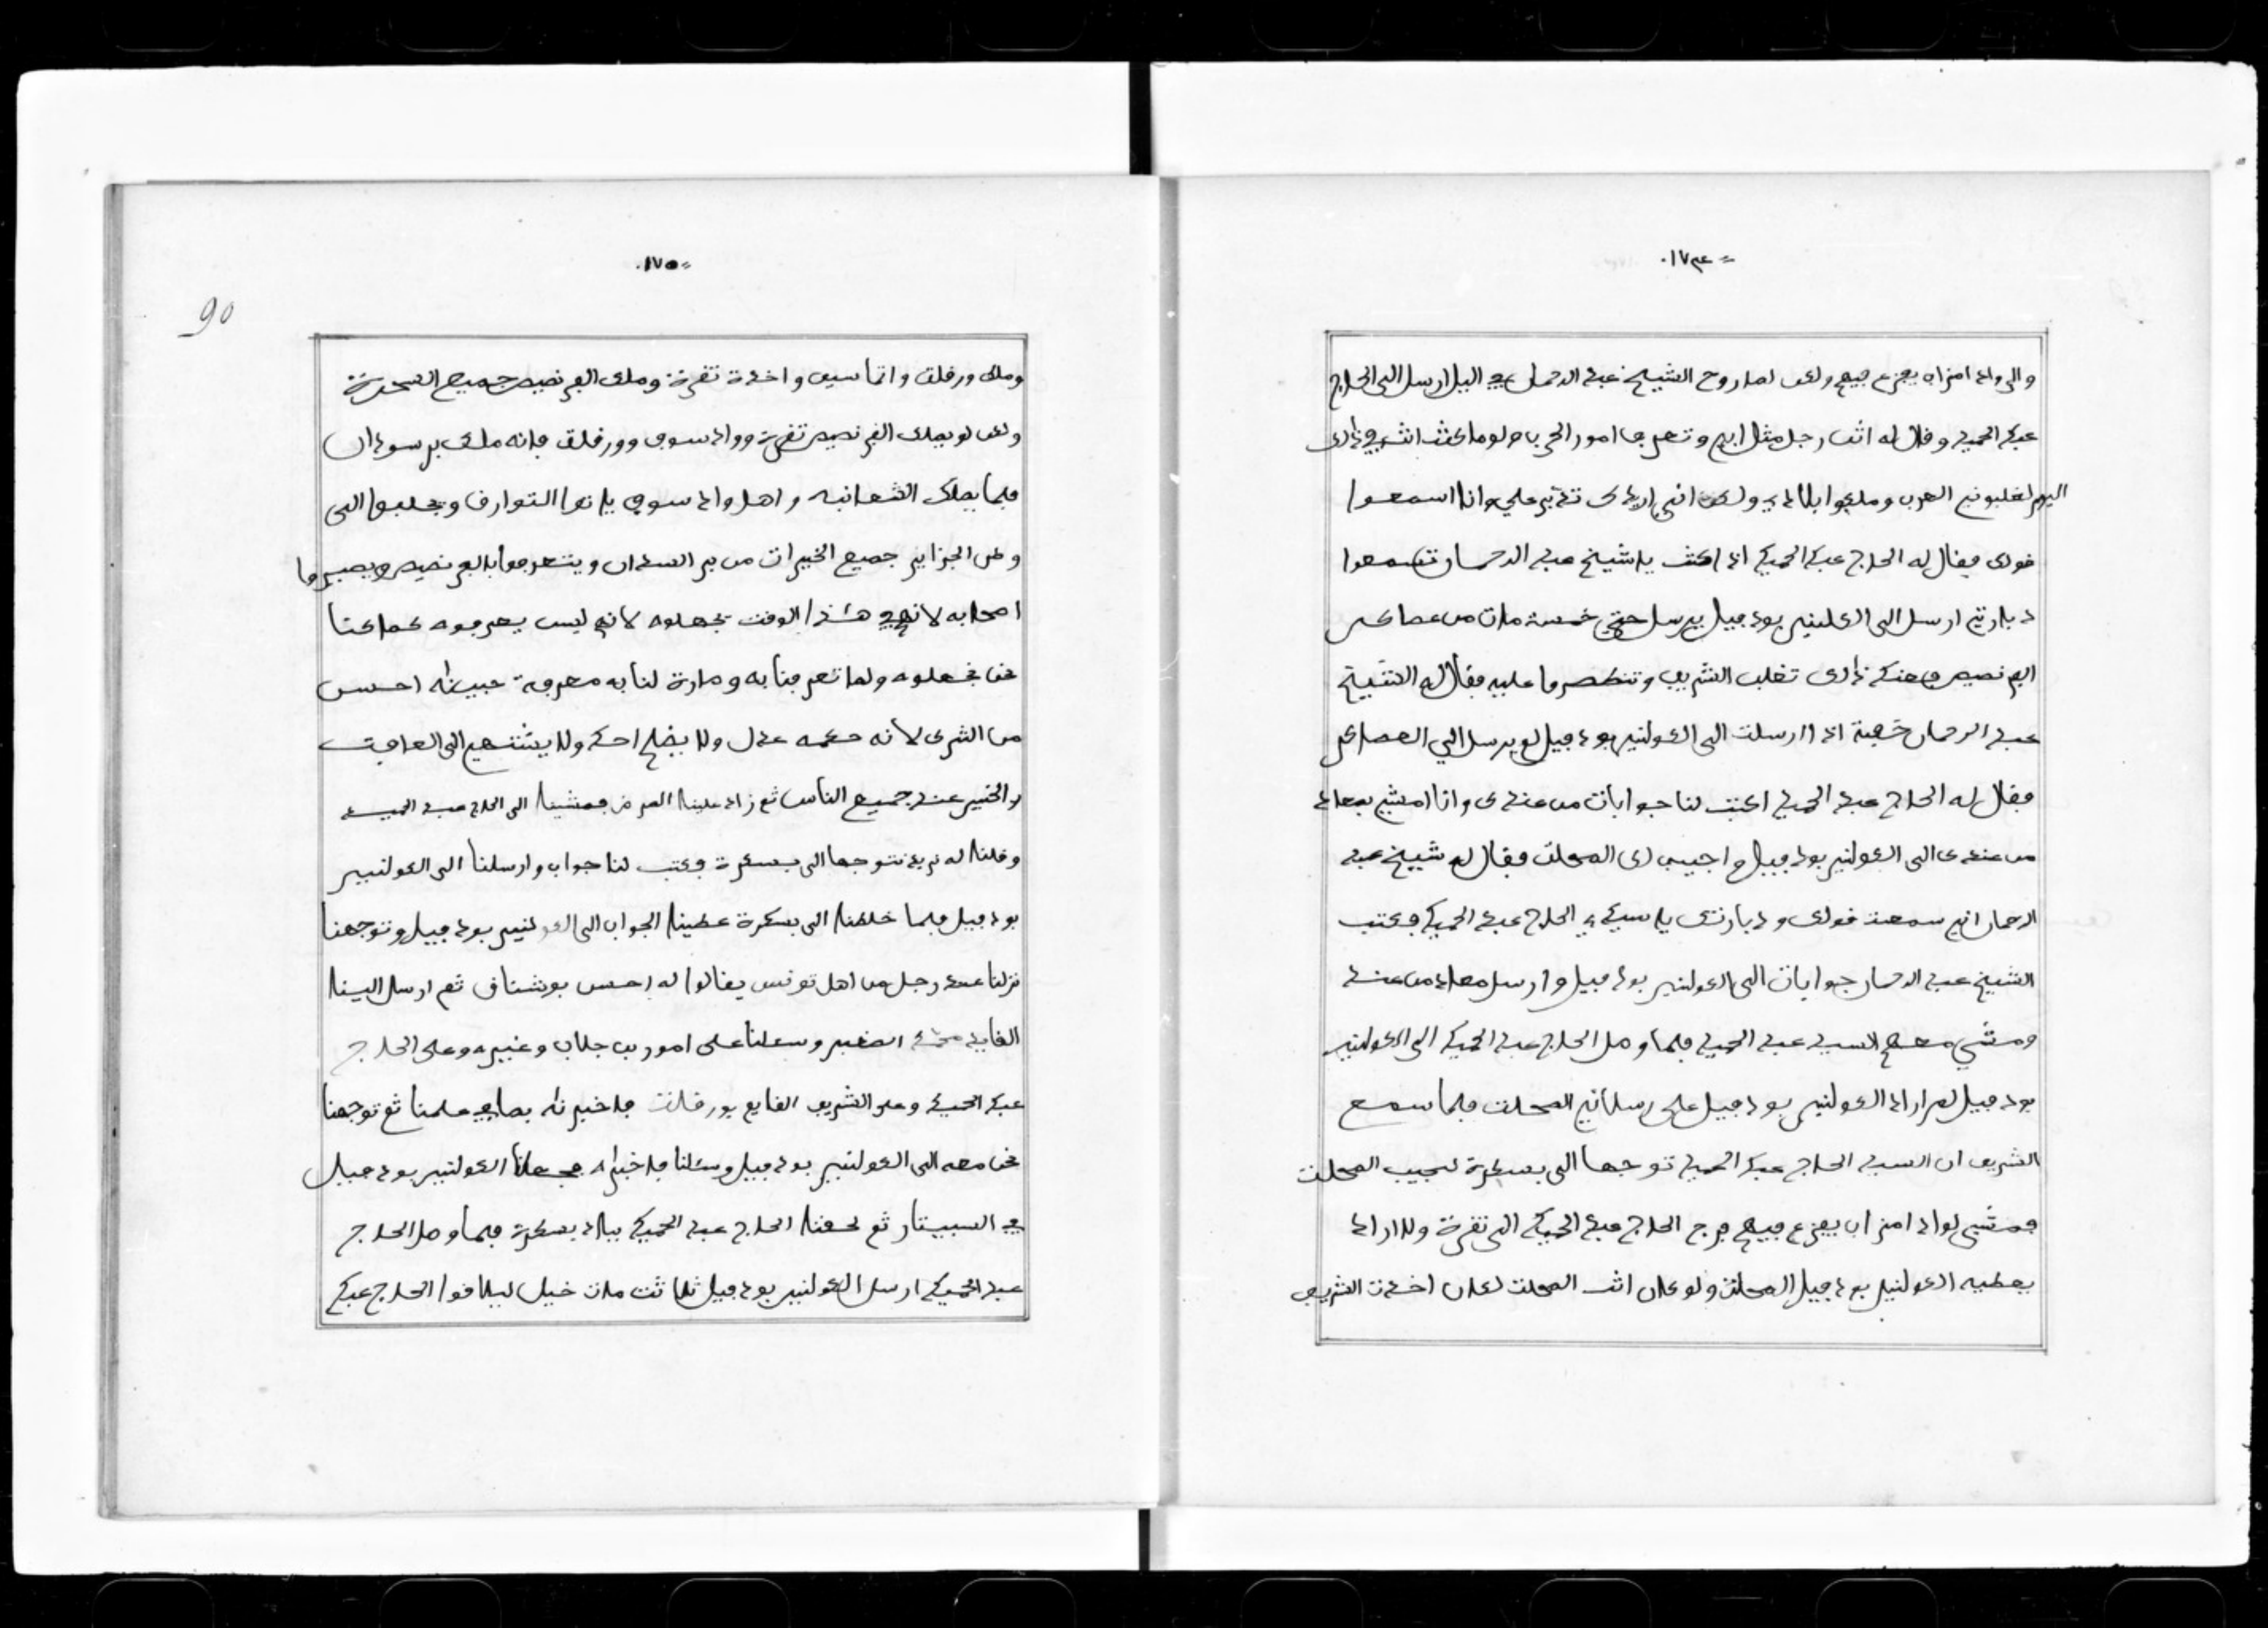 =١٧٤.
والى واد امزاب يفزع فيهم ولكن لما روح الشيخ عبد الرحمان في اليل ارسل الى الحاج
عبد الحميد وقال له انت رجل مثل ابي وتعرف امور الحرب ولو ما كنت انت في ذلك
اليوم لغلبوني العرب وملكوا بلادي ولكن اني اريدك تدبر علي وانا اسمعوا
قولك فقال له الحاج عبد الحميد اذا كنت يا شيخ عبد الرحمان تسمعوا
دبارتي ارسل الى الكلنير بود فيل يرسل حتى خمسة مات من عصاكر
الفرنصيص وعند ذلك تغلب الشريف وتنطصروا عليه فقال له الشيخ
عبد الرحمان خفية اذا ارسلت الى الكولنير بود فيل لم يرسل الي العصاكر
فقال له الحاج عبد الحميد اكتب لنا جوابات من عندك وانا امشي بمعاد
من عندك الى الكولنير بود فيل واجيب لك المحلت فقال له شيخ عبد
الرحمان اني سمعت قولك ودبارتك يا سيدي الحاج عبد الحميد فكتب
الشيخ عبد الرحمان جوابات الى الكولنير بود فيل وارسل معاد من عنده
ومشى معهم السيد عبد الحميد فلما وصل الحاج عبد الحميد الى الكولنير
بود فيل لم اراد الكولنير بود فيل على رسلاني المحلت فلما سمع
الشريف ان السيد الحاج عبد الحميد توجها الى بسكرة لجيب المحلت
فمشى لواد امزاب يفزع فيهم فرج الحاج عبد الحميد الى تقرة ولا اراد
يعطيه الكولنير بود فيل المحلت ولو كان اتت المحلت لكان اخذت الشريف
=١٧٥.
90
وملك ورقلت وانماسين واخذة تقرة وملك الفرنصيص جميع الصحرة
ولكن لو يملك الفرنصيص تقرة وواد سوف وورقلت فانه ملك بر سودان
فلما يملك الشعانبه واهل واد سوف ياتوا التوارف ويجلبوا الى
وطن الجزاير جميع الخيرات من بر السدان ويتعرفوا بالفرنصيص ويصيروا
اصحابه لانهم في هذا الوقت يجهلوه لانهم ليس يعرفوه كما كنا
نحن نجهلوه ولما تعرفنا به وصارة لنا به معرفة جيدة احسن
من الشرع لانه حكمه عدل ولا يضلم احد ولا يشتهي الى العافيت
والخير عند جميع الناس ثم زاد علينا المرض فمشينا الى الحاج عبد الحميد
وقلنا له نريد نتوجها الى بسكرة فكتب لنا جواب وارسلنا الى الكولنيير
بود فيل فلما خلطنا الى بسكرة عطينا الجواب الى الكولنير بود فيل وتوجهنا
نزلنا عند رجل من اهل تونس يقالوا له احسن بوشناف ثم ارسل الينا
القايد محمد الصغير وسئلنا على امور بن جلاب وغيره وعلى الحاج
عبد الحميد وعلى الشريف القايم بورقلت فاخبرناه بما في علمنا ثم توجهنا
نحن معه الى الكولنير بود فيل وسئلنا فاخبرناه فجعلنا الكولنير بود فيل
في السبيتار ثم لحقنا الحاج عبد الحميد ببلاد بسكرة فلما وصل الحاج
عبد الحميد ارسل الكولنير بود فيل ثلاثت مات خيل ليلاقوا الحاج عبد